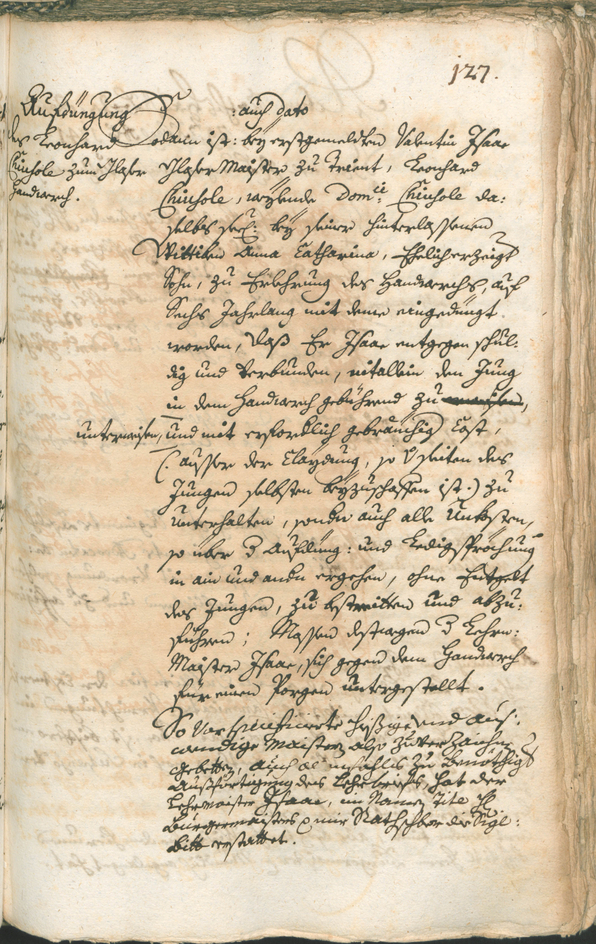 127.
Aufdüngung
des Leonhard
Chiusole zum Glaser
Handwerch.
: auch dato
Sodann ist: bey erstgemeldten Valentin Isaac
Glaser Maister zu Trient, Leonhard
Chiusole, weylende Dom: Chiusole da:
selbs seel: bey seiner hinterlassenen
Wittiben Anna Catharina, Ehelich erzeigt
Sohn, zu Erlehrnung des Handwerchs, auf
Sechs Jahrlang mit deme eingedüngt
worden, daß Er Isaac entgegen schul:
dig und verbunden, nit allein den Jung
in dem Handwerch gebührend zu
unterweisen, und mit erforderlich gebräuchig Cost,
(: ausser der Claydung, so v seiten des
Jungen selbsten beyzuschaffen ist :) zu
unterhalten, sonder auch alle Uncosten,
so über d Aufding: und Ledigsprechung
in ain und ander ergehen, ohne Entgelt
des Jungen, zu bestreitten und abzu:
führen; Massen destwegen d Lehrn:
Maister Isaac, sich gegen dem Handwerch
für einen Porgen untergestellt.
So vor hießige und auß:
wendige Maistern also
gebetten, auch
Außfertigung des Lehrbriefs, hat der
Lehrmaister Isaac, im Namen
Burgermaisters mir Rathschbr die Sigl:
bitt erstattet.